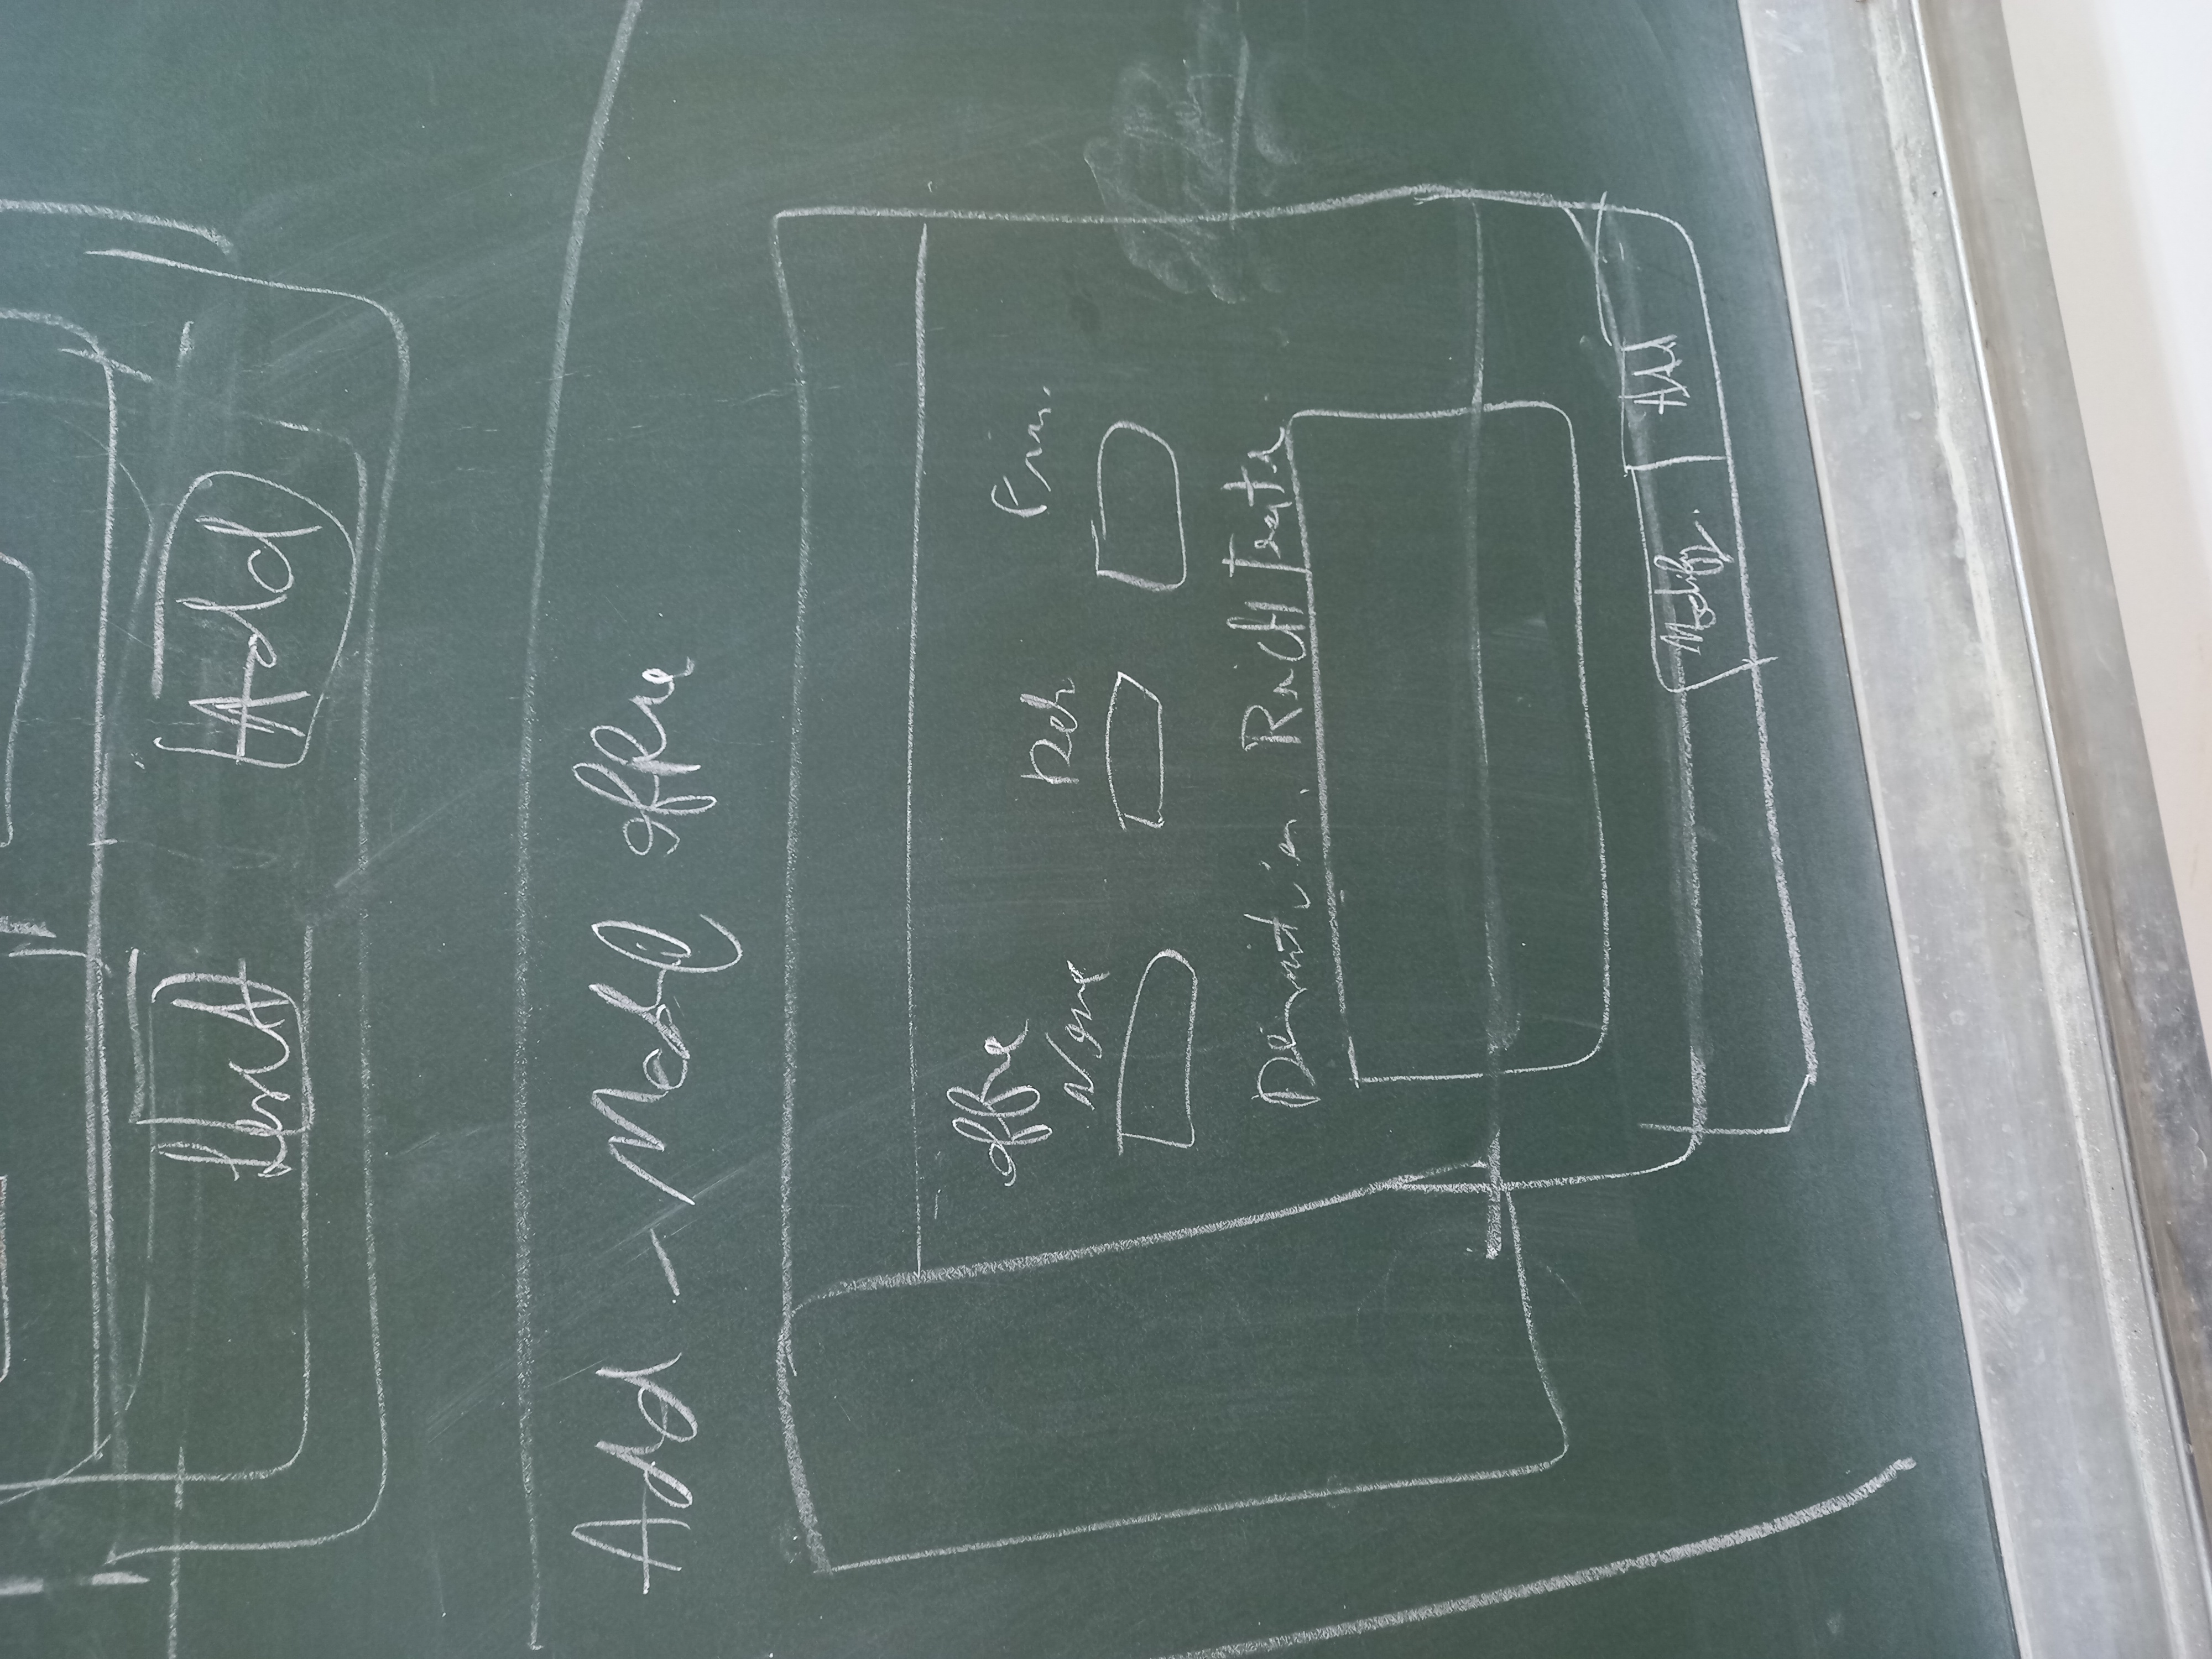 Add
Add - Modify offre
offre
Name
Deb
Fin.
Description. RICH Texte
Modify.
Add